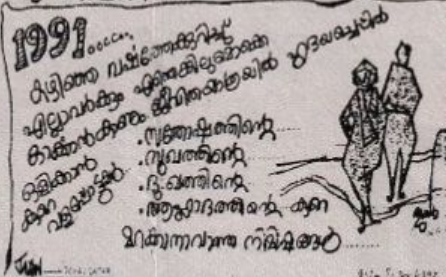 1991......
കഴിഞ്ഞ വർഷത്തേക്കുറിച്ച്
എല്ലാവർക്കും എന്തെങ്കിലുമൊക്കെ
കാണും ജീവിതയാത്രയിൽ ഹൃദയച്ചെപ്പിൽ
ഒളിക്കാൻ
കുറെ
വളപ്പൊട്ടുകൾ
. സന്തോഷത്തിന്റെ .....
. സുഖത്തിന്റെ .....
. ദുഃഖത്തിന്റെ .....
. ആഹ്ലാദത്തിന്റെ കുറെ
മറക്കാനാവാത്ത നിമിഷങ്ങൾ ......